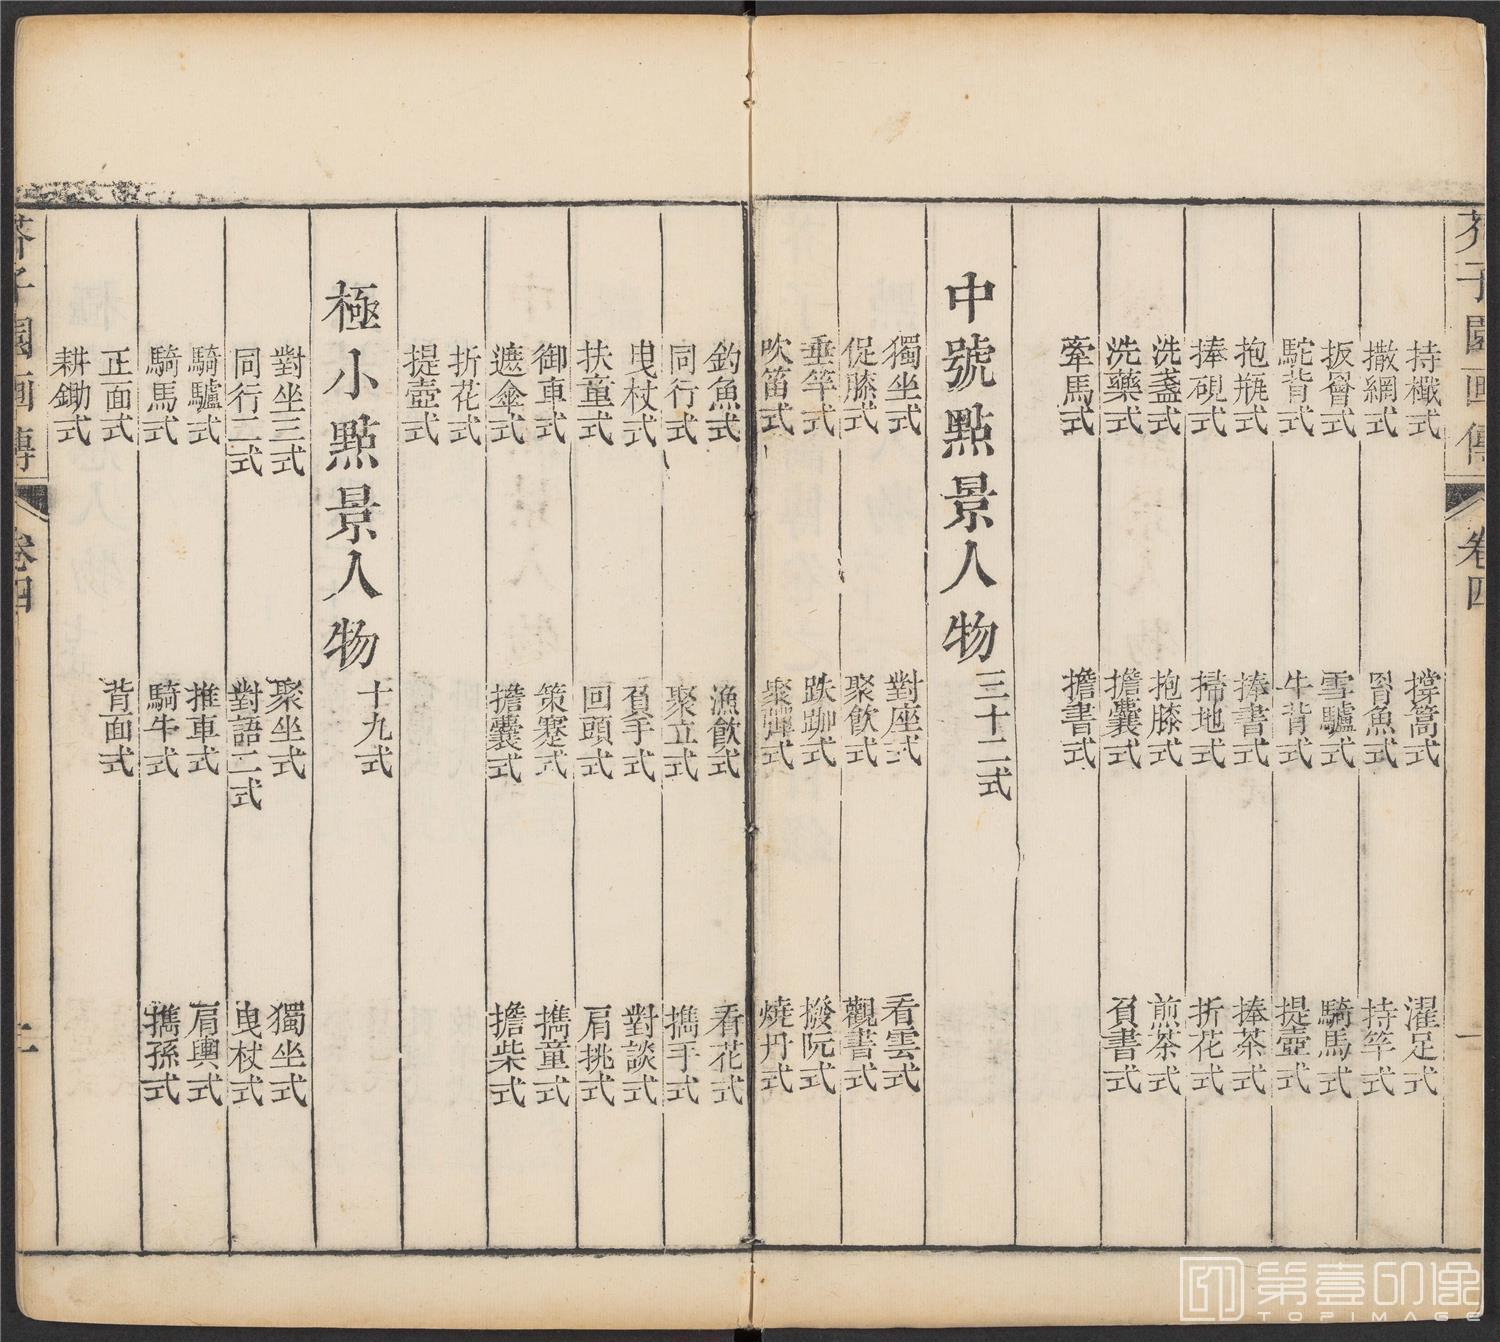 芥子園画傳 卷四 一
持檝式 撐篙式 濯足式
撒網式 罾魚式 持竿式
扳罾式 雪驢式 騎馬式
駝背式 牛背式 提壺式
抱瓶式 捧書式 捧茶式
捧硯式 掃地式 折花式
洗盞式 抱膝式 煎茶式
洗藥式 擔囊式 負書式
牽馬式 擔書式
中號點景人物 三十二式
獨坐式 對座式 看雲式
促膝式 聚飲式 觀書式
垂竿式 趺跏式 撥阮式
吹笛式 聚彈式 燒丹式
釣魚式 漁飲式 看花式
同行式 聚立式 攜手式
曳杖式 負手式 對談式
扶童式 回頭式 肩挑式
御車式 策蹇式 攜童式
遮傘式 擔囊式 擔柴式
折花式
提壺式
極小點景人物 十九式
對坐三式 聚坐式 獨坐式
同行二式 對語二式 曳杖式
騎驢式 推車式 肩輿式
騎馬式 騎牛式 攜孫式
正面式 背面式
耕鋤式
芥子園画傳 卷四 二
第壹印像
TOPIMAGE